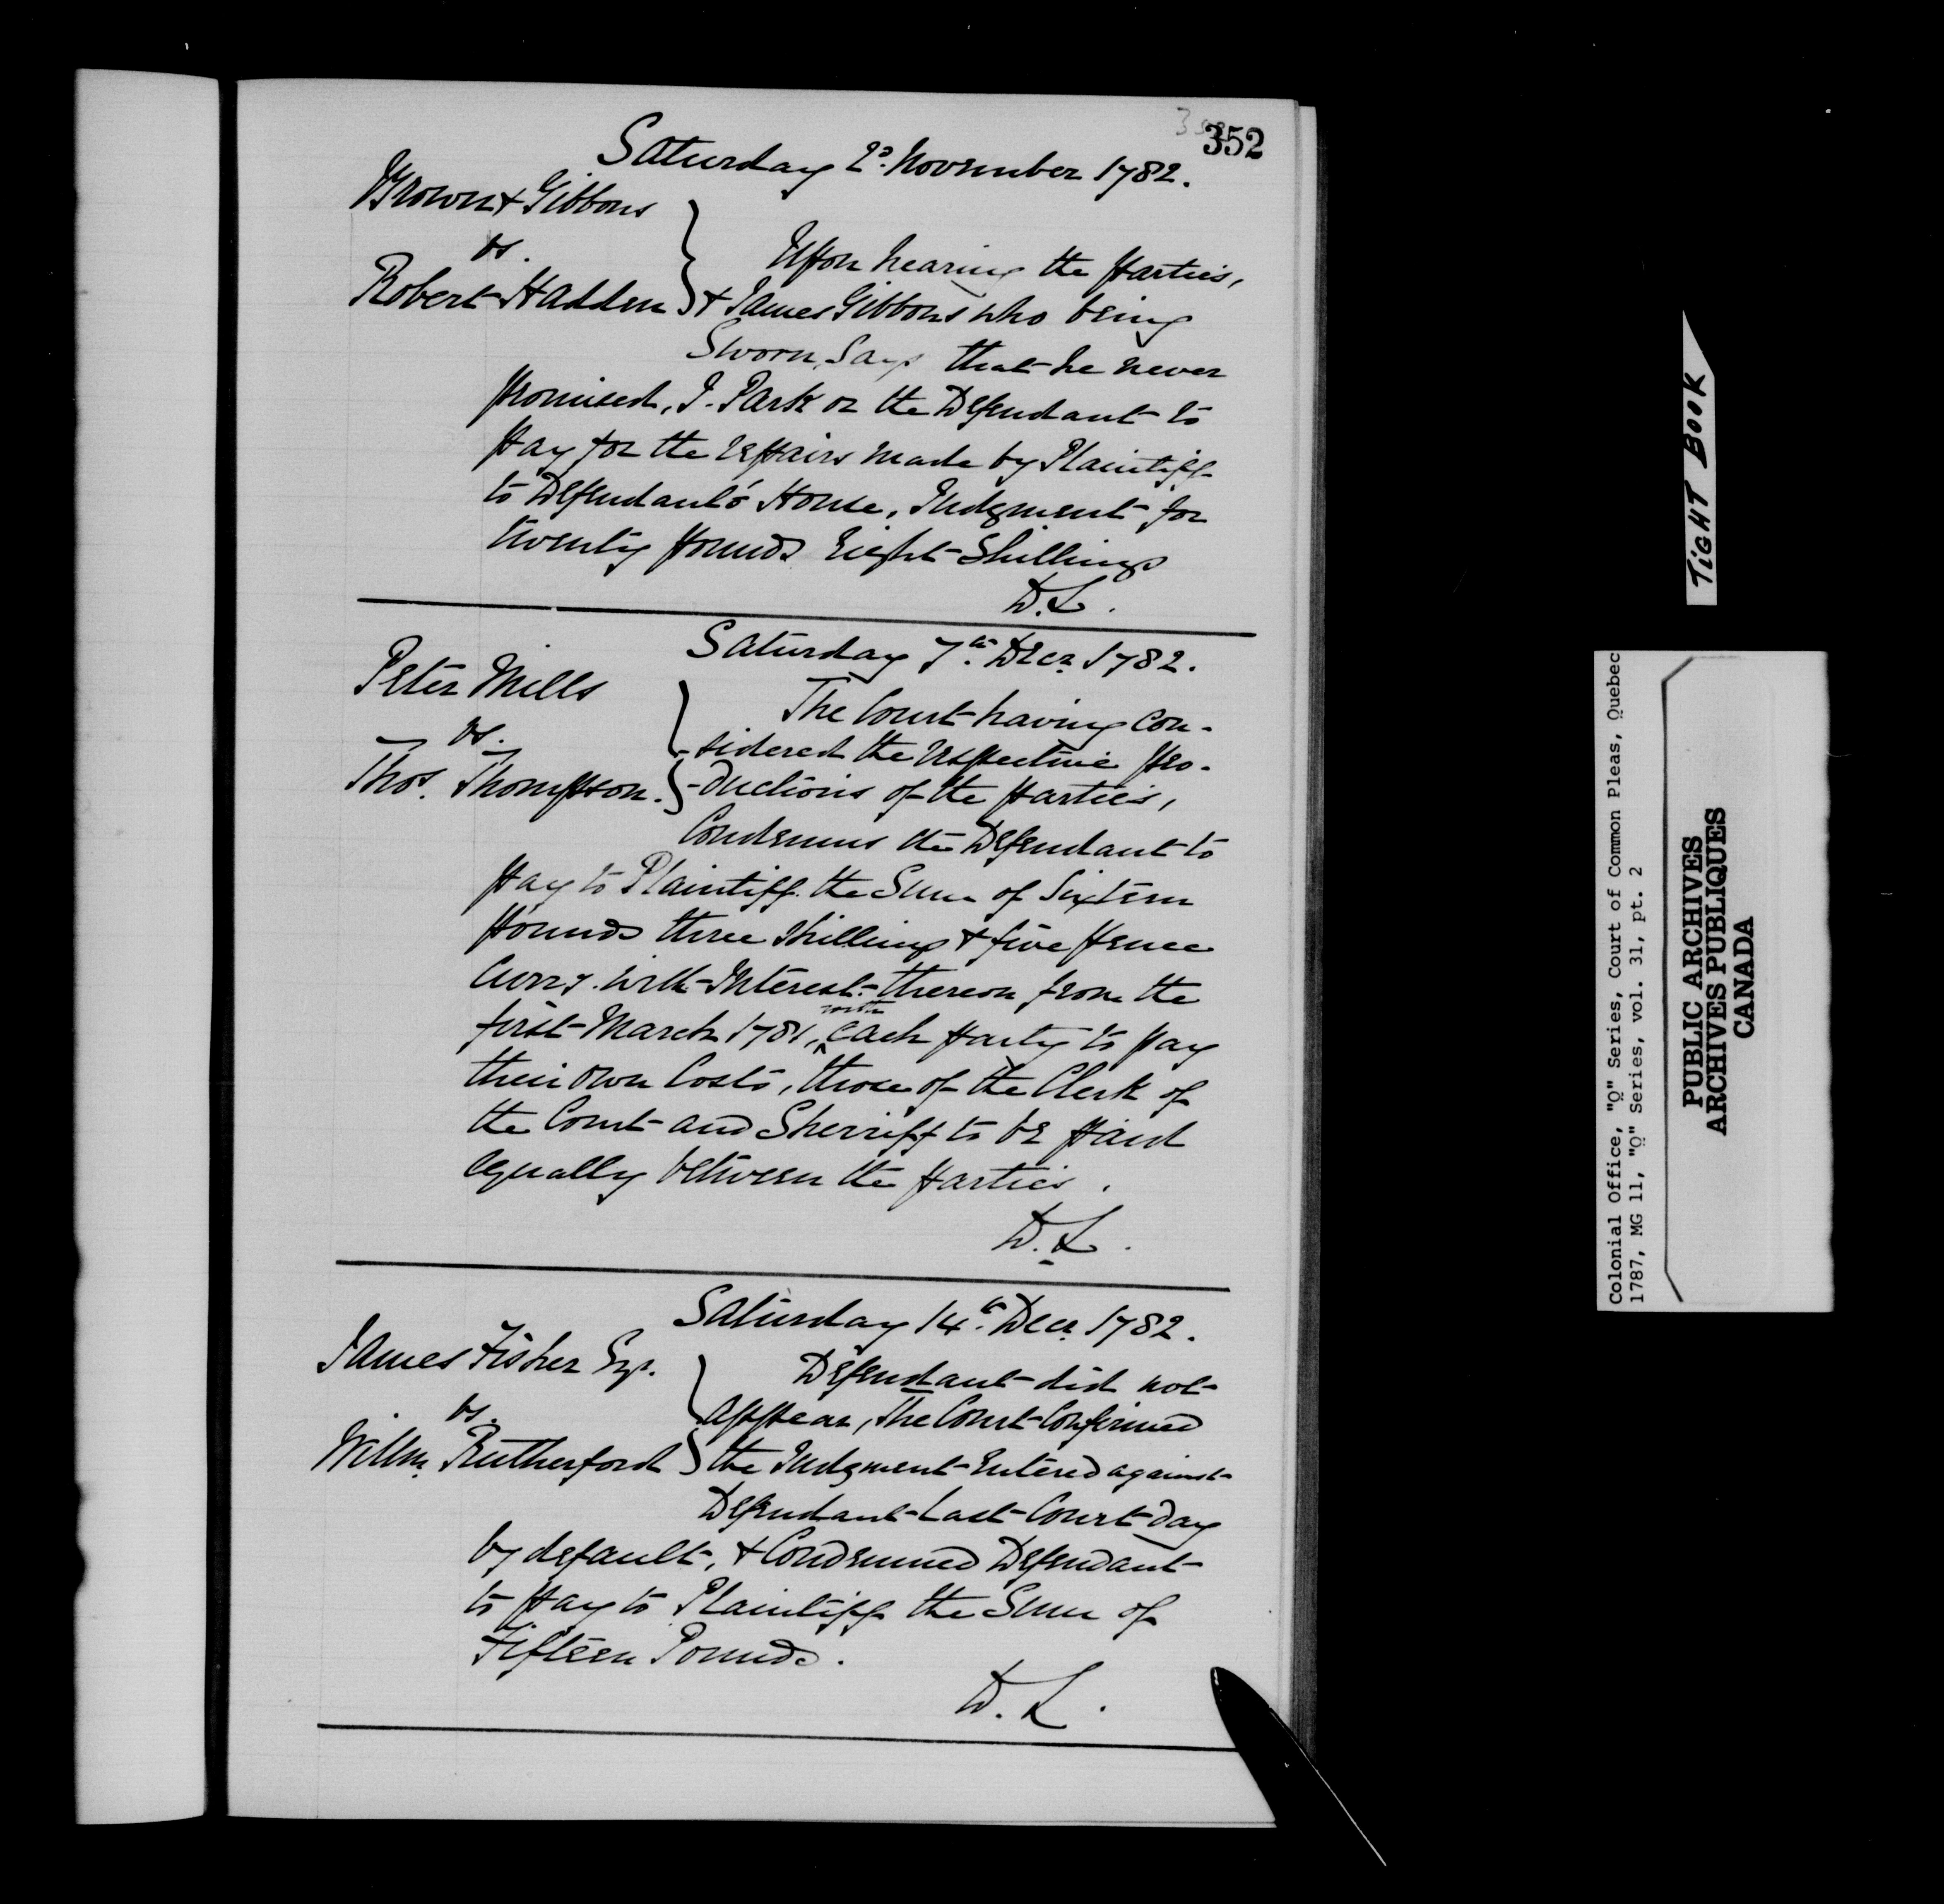 352
Saturday 2d. November 1782.
Brown & Gibbons
vs.
Robert Hadden
Upon hearing the parties,
& James Gibbons who being
Sworn, Says that he never
promised, J. Park or the Defendant to
pay for the repairs made by Plaintiff
to Defendant's House, Judgment for
twenty pounds Eight Shillings
D.L.
Saturday 7th. Decr. 1782.
Peter Mills
vs.
Thos. Thompson.
The Court having con-
-sidered the respective pro-
-ductions of the parties,
Condemns the Defendant to
pay to Plaintiff the Sum of Sixteen
pounds three shillings & five pence
Curry. with Interest thereon from the
first March 1781, with each party to pay
their own Costs, those of the Clerk of
the Court and Sherriff to be paid
equally between the parties.
D.L.
Saturday 14th. Decr. 1782.
James Fisher Esqr.
vs.
Willm. Rutherford
Defendant did not
appear, The Court Confirmed
the Judgment Entered against
Defendant Last Court day
by default, & Condemned Defendant
to pay to Plaintiff the Sum of
Fifteen Pounds.
D.L.
TIGHT BOOK
Colonial Office, "Q" Series, Court of Common Pleas, Quebec
1787, MG 11, "Q" Series, vol. 31, pt. 2
PUBLIC ARCHIVES
ARCHIVES PUBLIQUES
CANADA